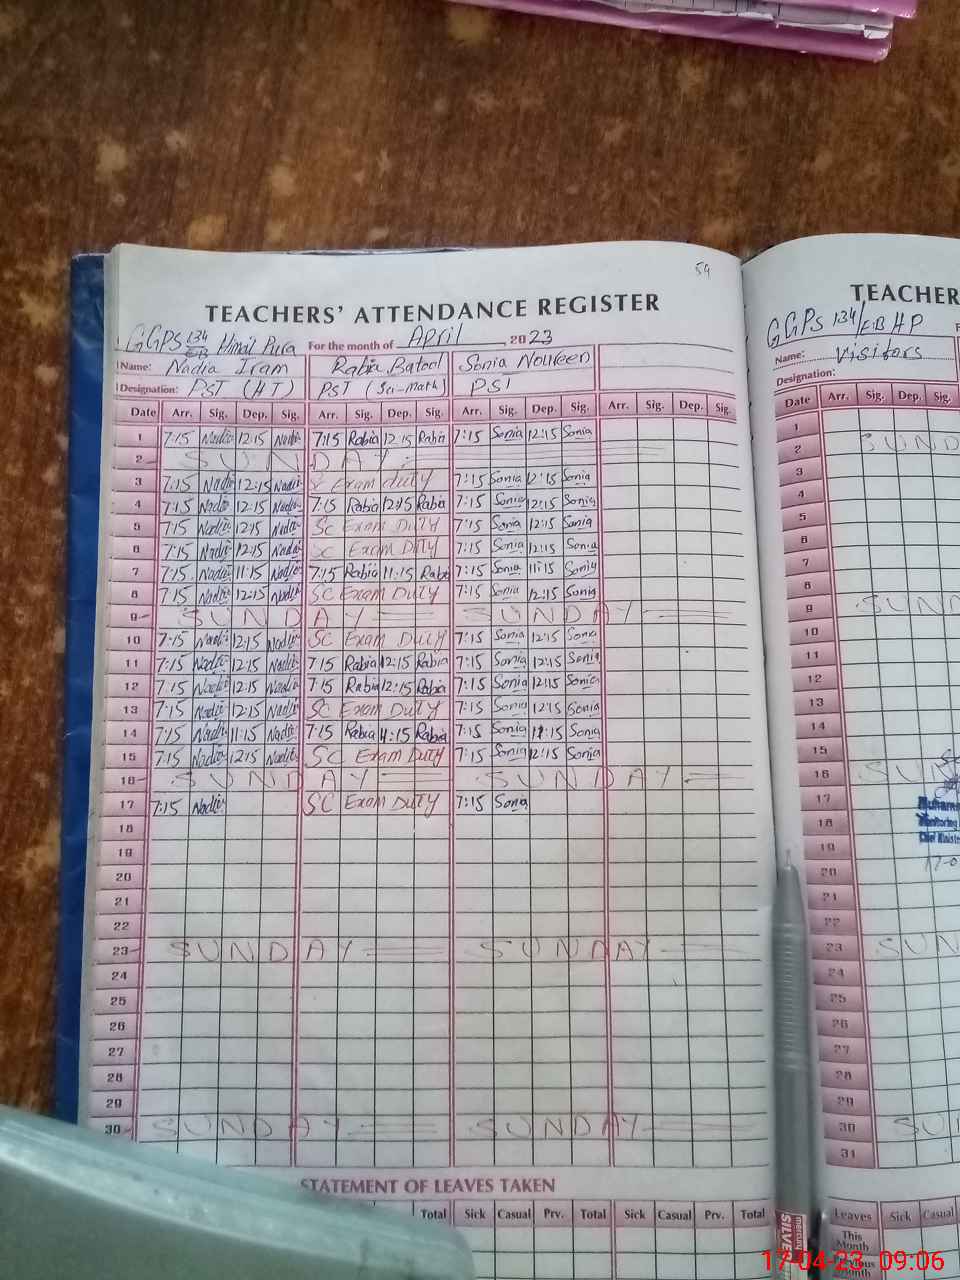 59
TEACHERS' ATTENDANCE REGISTER
GGPS 134/EB Hmail Pura For the month of April, 2023
Name: Nadia Iram Rabia Batool Sonia Noureen
Designation: PST (HT) PST (Sci-math) PST
Date Arr. Sig. Dep. Sig. Arr. Sig. Dep. Sig. Arr. Sig. Dep. Sig. Arr. Sig. Dep. Sig.
1 7:15 Nadia 12:15 Nadia 7:15 Rabia 12:15 Rabia 7:15 Sonia 12:15 Sonia
2 SUNDAY
3 7:15 Nadia 12:15 Nadia SC Exam duty 7:15 Sonia 12:15 Sonia
4 7:15 Nadia 12:15 Nadia 7:15 Rabia 12:15 Rabia 7:15 Sonia 12:15 Sonia
5 7:15 Nadia 12:15 Nadia SC Exam DUTY 7:15 Sonia 12:15 Sonia
6 7:15 Nadia 12:15 Nadia SC Exam DUTY 7:15 Sonia 12:15 Sonia
7 7:15 Nadia 11:15 Nadia 7:15 Rabia 11:15 Rabia 7:15 Sonia 11:15 Sonia
8 7:15 Nadia 12:15 Nadia SC Exam DUTY 7:15 Sonia 12:15 Sonia
9 SUNDAY SUNDAY
10 7:15 Nadia 12:15 Nadia SC Exam DUTY 7:15 Sonia 12:15 Sonia
11 7:15 Nadia 12:15 Nadia 7:15 Rabia 12:15 Rabia 7:15 Sonia 12:15 Sonia
12 7:15 Nadia 12:15 Nadia 7:15 Rabia 12:15 Rabia 7:15 Sonia 12:15 Sonia
13 7:15 Nadia 12:15 Nadia SC Exam DUTY 7:15 Sonia 12:15 Sonia
14 7:15 Nadia 11:15 Nadia 7:15 Rabia 11:15 Rabia 7:15 Sonia 11:15 Sonia
15 7:15 Nadia 12:15 Nadia SC Exam DUTY 7:15 Sonia 12:15 Sonia
16 SUNDAY SUNDAY
17 7:15 Nadia SC Exam DUTY 7:15 Sonia
18
19
20
21
22
23 SUNDAY SUNDAY
24
25
26
27
28
29
30 SUNDAY SUNDAY
STATEMENT OF LEAVES TAKEN
Total Sick Casual Prv. Total Sick Casual Prv. Total
TEACHER
GGPS 134/EB HP
Name: Visitors
Designation:
Date Arr. Sig. Dep. Sig.
1
2 SUND
3
4
5
6
7
8
9 SUN
10
11
12
13
14
15
16 SUN
17
18
19
20
21
22
23 SUN
24
25
26
27
28
29
30 SU
31
Leaves Sick Casual
This Month
Previous Month
mercury
SILVE
17-04-23 09:06